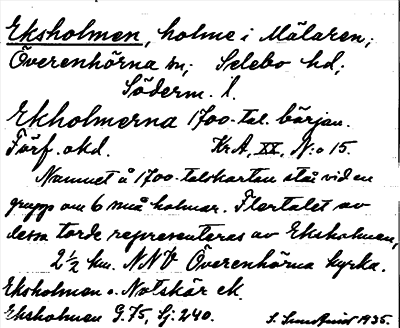 Eksholmen, holme i Mälaren;
Överenhörna sn; Selebo hd;
Söderm. l.
Ekholmerna 1700-tal. början.
Förf. okd. KrA, XX, N:o 15.
Namnet å 1700-talskartan står vid en
grupp om 6 små holmar. Flertalet av
dessa torde representeras av Eksholmen,
2 1/2 km. NNV Överenhörna kyrka.
Eksholmen o. Notskär ek.
Eksholmen G. 75, Sj: 240. 1935.